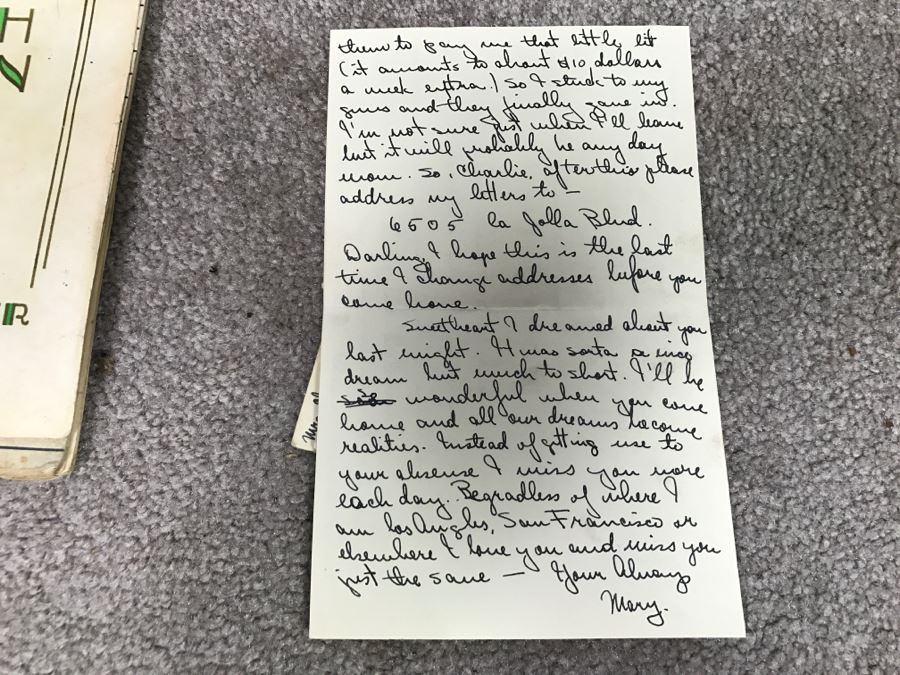 HZ
R
them to pay me that little bit
(it amounts to about $10 dollars
a week extra.) So I stuck to my
guns and they finally gave in.
I'm not sure just when I'll leave
but it will probably be any day
now. So, Charlie, after this please
address my letters to —
6505 La Jolla Blvd.
Darling, I hope this is the last
time I change addresses before you
come home.
Sweetheart I dreamed about you
last night. It was sorta a nice
dream but much to short. I'll be
wonderful when you come
home and all our dreams become
realities. Instead of getting use to
your absense I miss you more
each day. Regradless of where I
am Los Angles, San Francisco or
elsewhere I love you and miss you
just the same — Your Always
Mary.